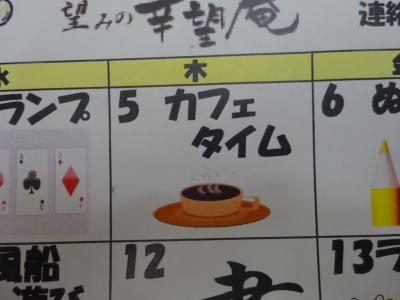 望みの幸望庵
連絡
水 木 金
ランプ
5 カフェ
タイム
6 ぬ
風船
遊び
12
書
13 ラ